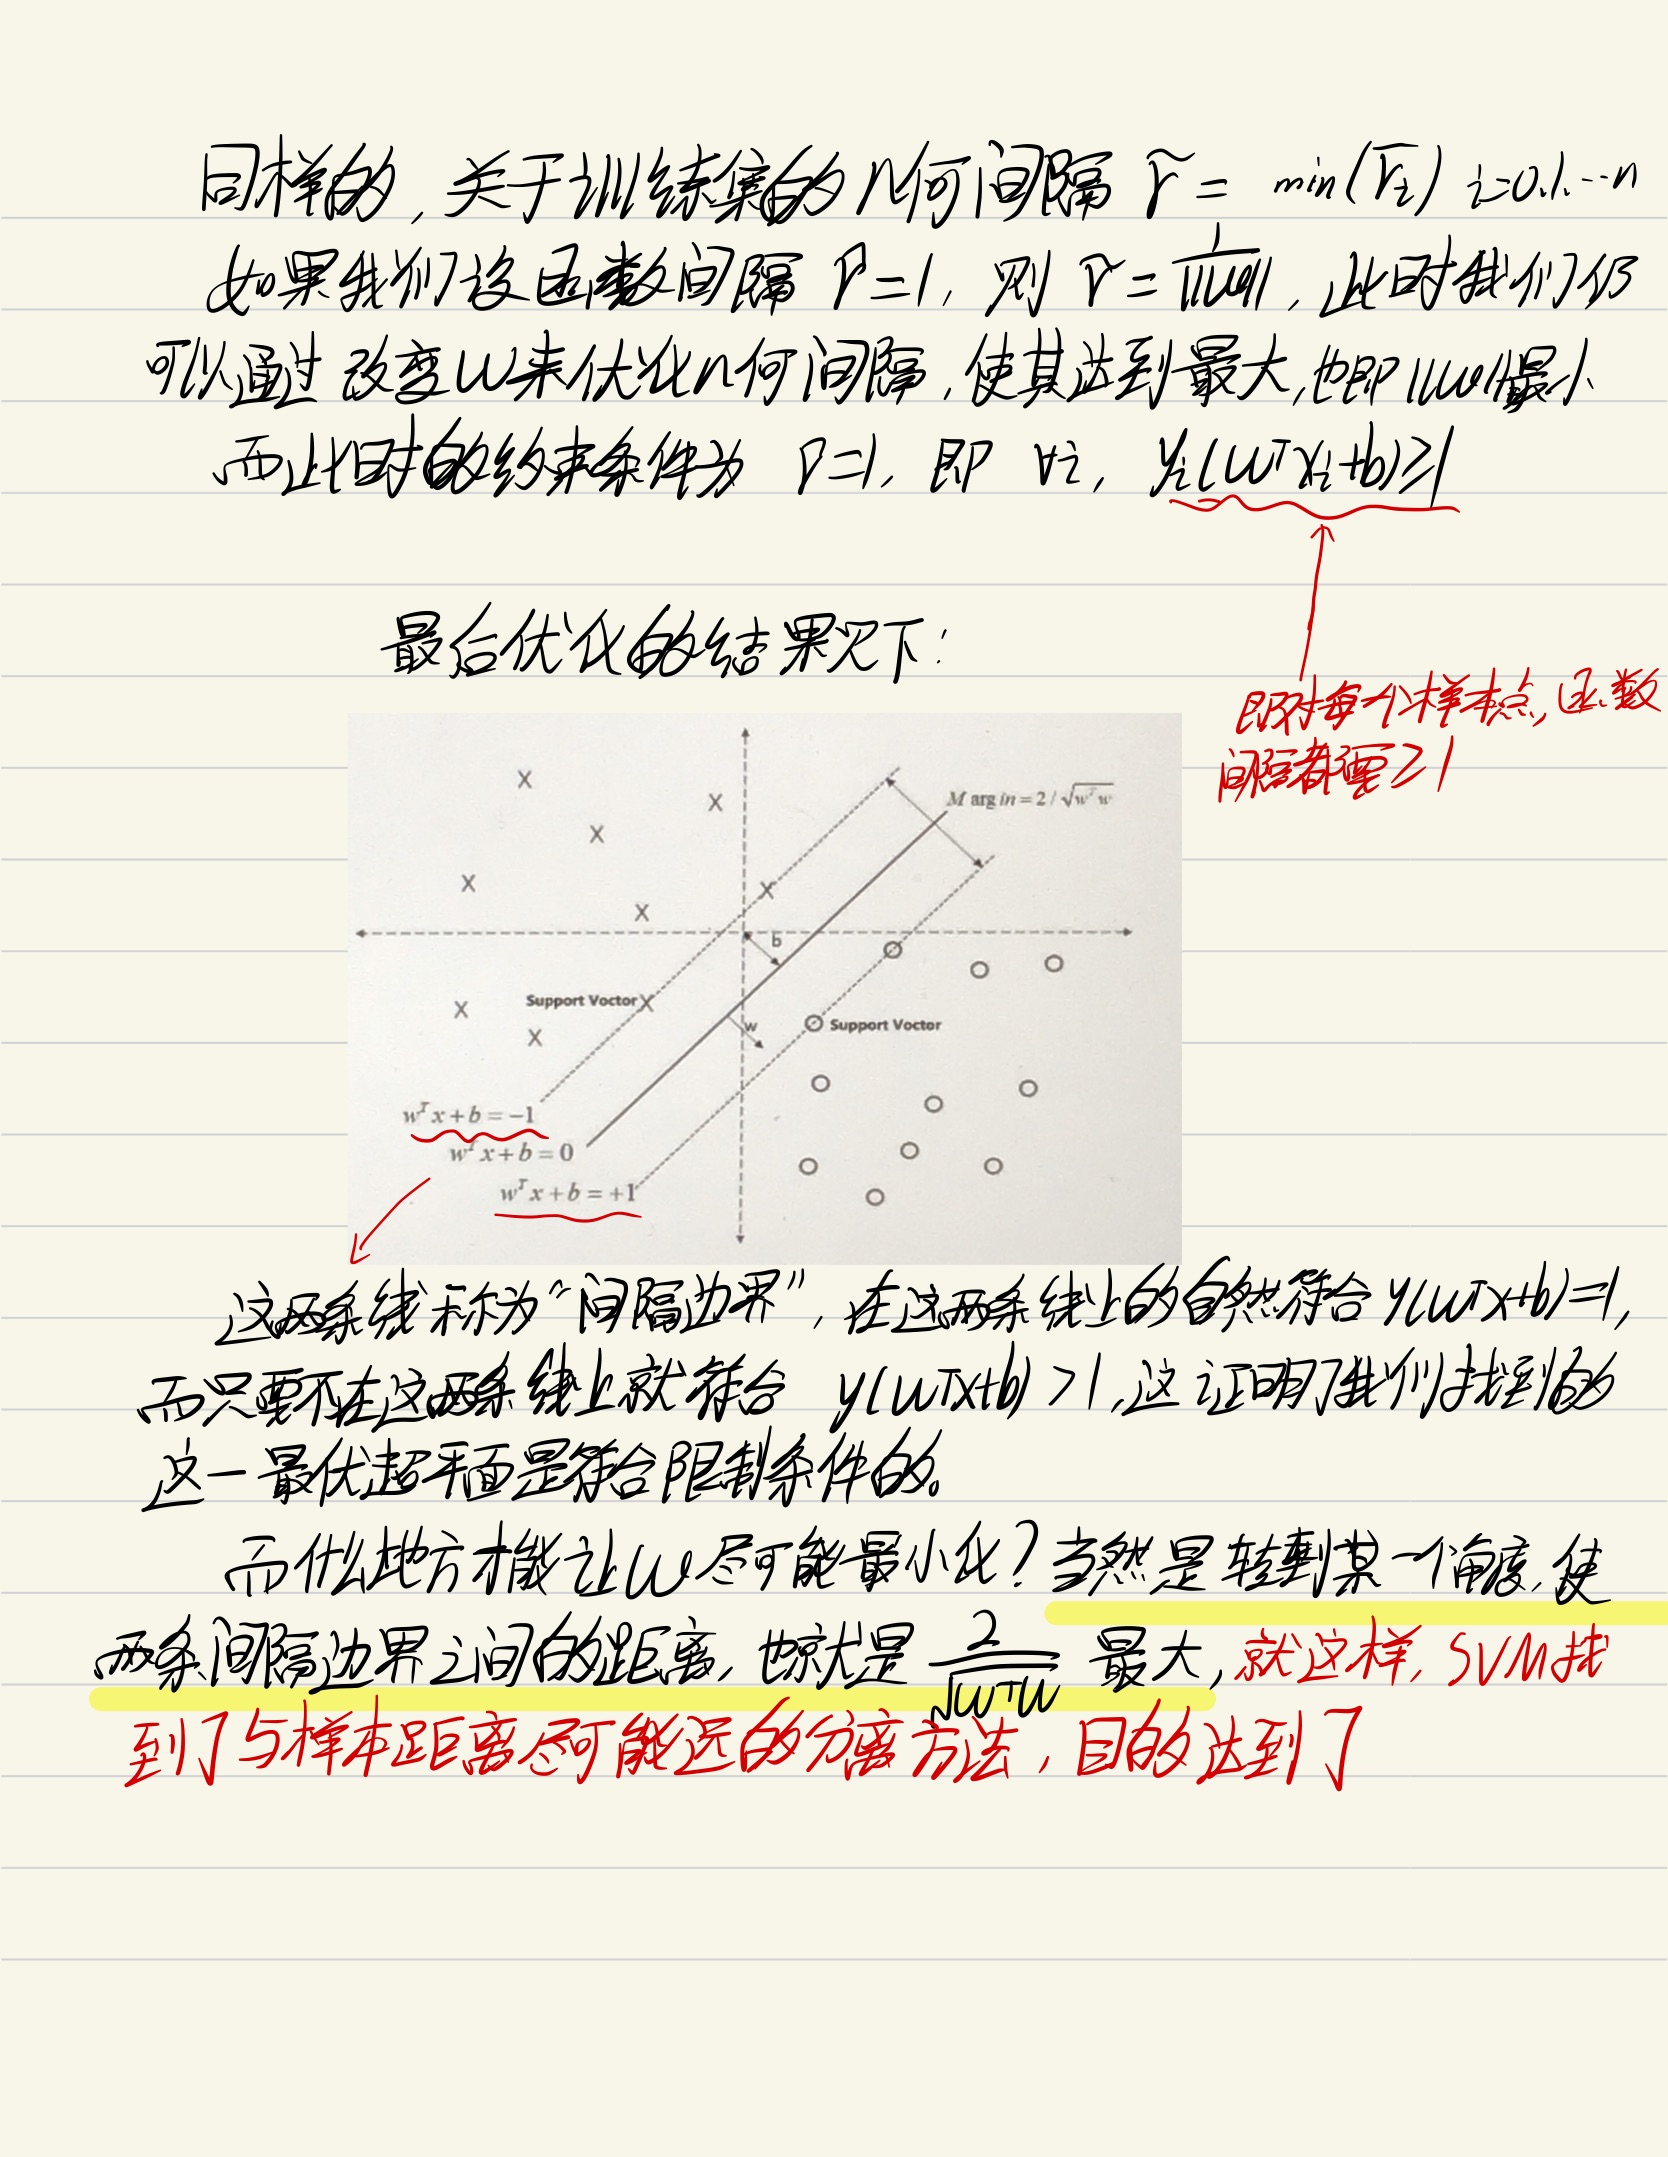 同样的，关于训练集的几何间隔 r̃ = min(r̃i) i=0.1.…n
如果我们设函数间隔 r̂=1，则 r̃ = 1/||w||，此时我们仍
可以通过改变w来优化几何间隔，使其达到最大，也即||w||最小
而此时的约束条件为 r̂=1，即 ∀i，yi(wᵀxi+b)≥1
最后优化的结果见下：
即对每个样本点，函数
间隔都要≥1
Margin = 2 / √wᵀw
b
Support Voctor
w
Support Voctor
wᵀx+b=−1
wᵀx+b=0
wᵀx+b=+1
这两条线称为“间隔边界”，在这两条线上的自然符合y(wᵀx+b)=1，
而只要不在这两条线上就符合 y(wᵀx+b)>1，这证明了我们找到的
这一最优超平面是符合限制条件的。
而什么地方才能让w尽可能最小化？当然是转到某一个角度，使
两条间隔边界之间的距离，也就是 2/√wᵀw 最大，就这样，SVM找
到了与样本距离尽可能远的分离方法，目的达到了